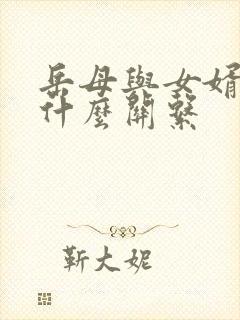 岳母與女婿
什麼關繫
靳大妮